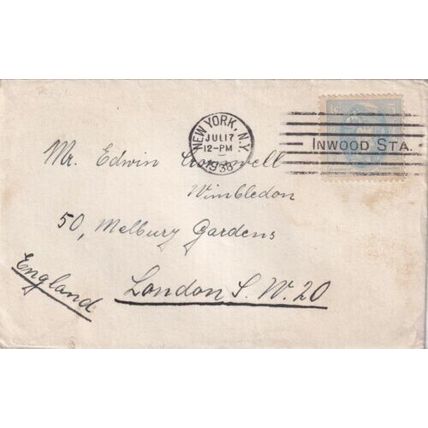 NEW YORK, N.Y.
JUL 17
12-PM
1936
INWOOD STA.
Mr. Edwin Cromwell
Wimbledon
50, Melbury Gardens
London S.W. 20
England